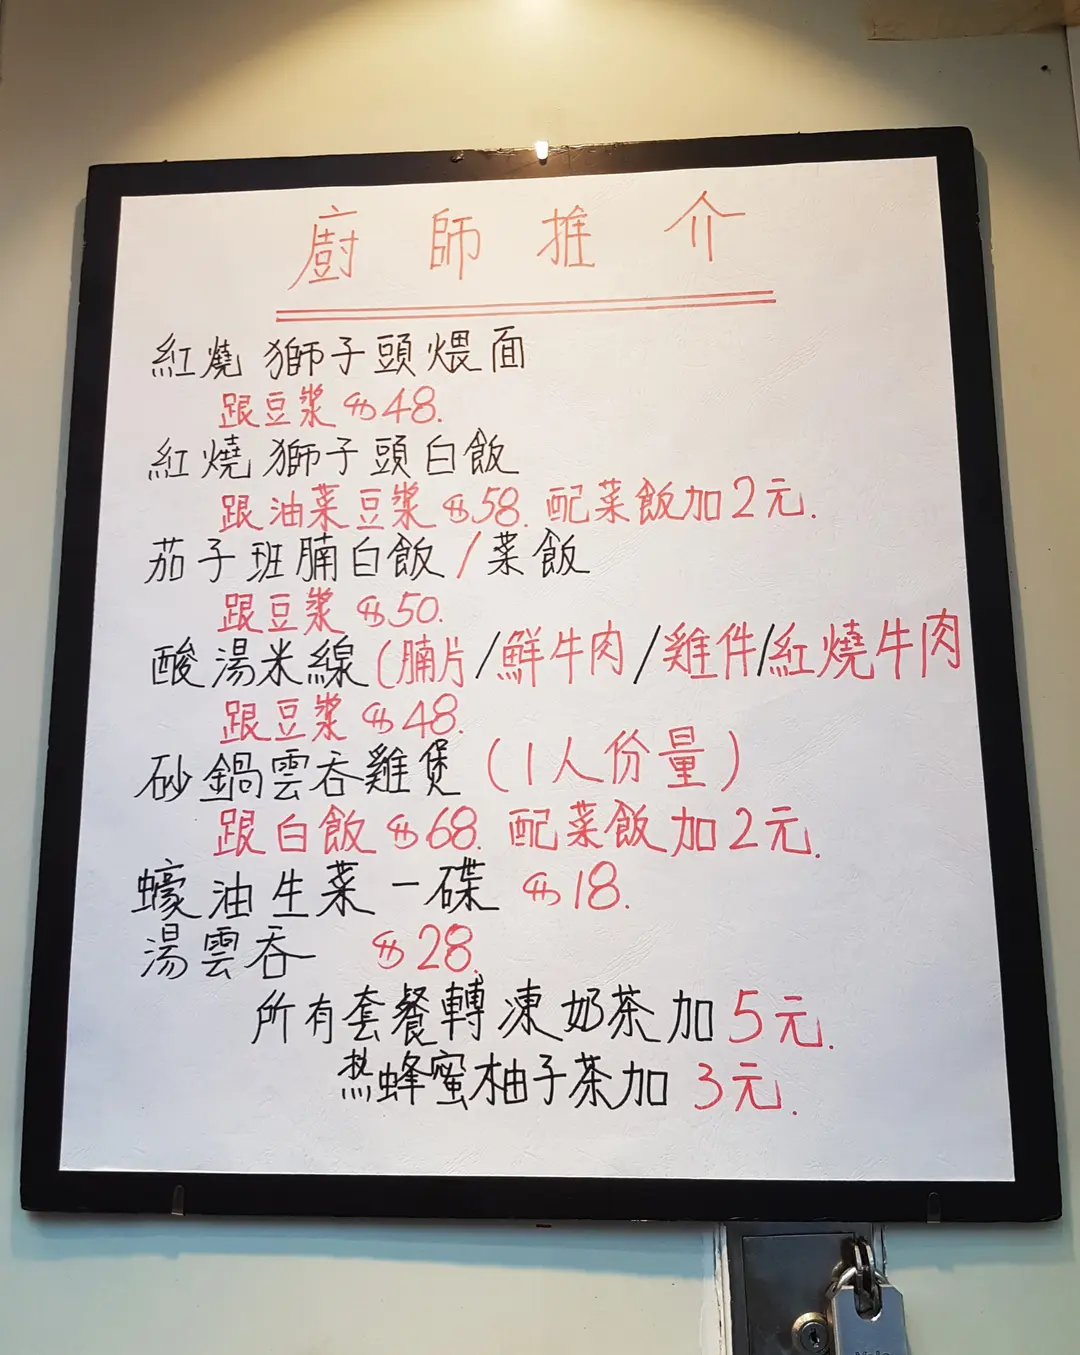 廚師推介
紅燒獅子頭煨面
跟豆漿 $48.
紅燒獅子頭白飯
跟油菜豆漿 $58. 配菜飯加2元.
茄子班腩白飯/菜飯
跟豆漿 $50.
酸湯米線(腩片/鮮牛肉/雞件/紅燒牛肉
跟豆漿 $48.
砂鍋雲吞雞煲(1人份量)
跟白飯 $68. 配菜飯加2元.
蠔油生菜一碟 $18.
湯雲吞 $28.
所有套餐轉凍奶茶加5元.
热蜂蜜柚子茶加3元.